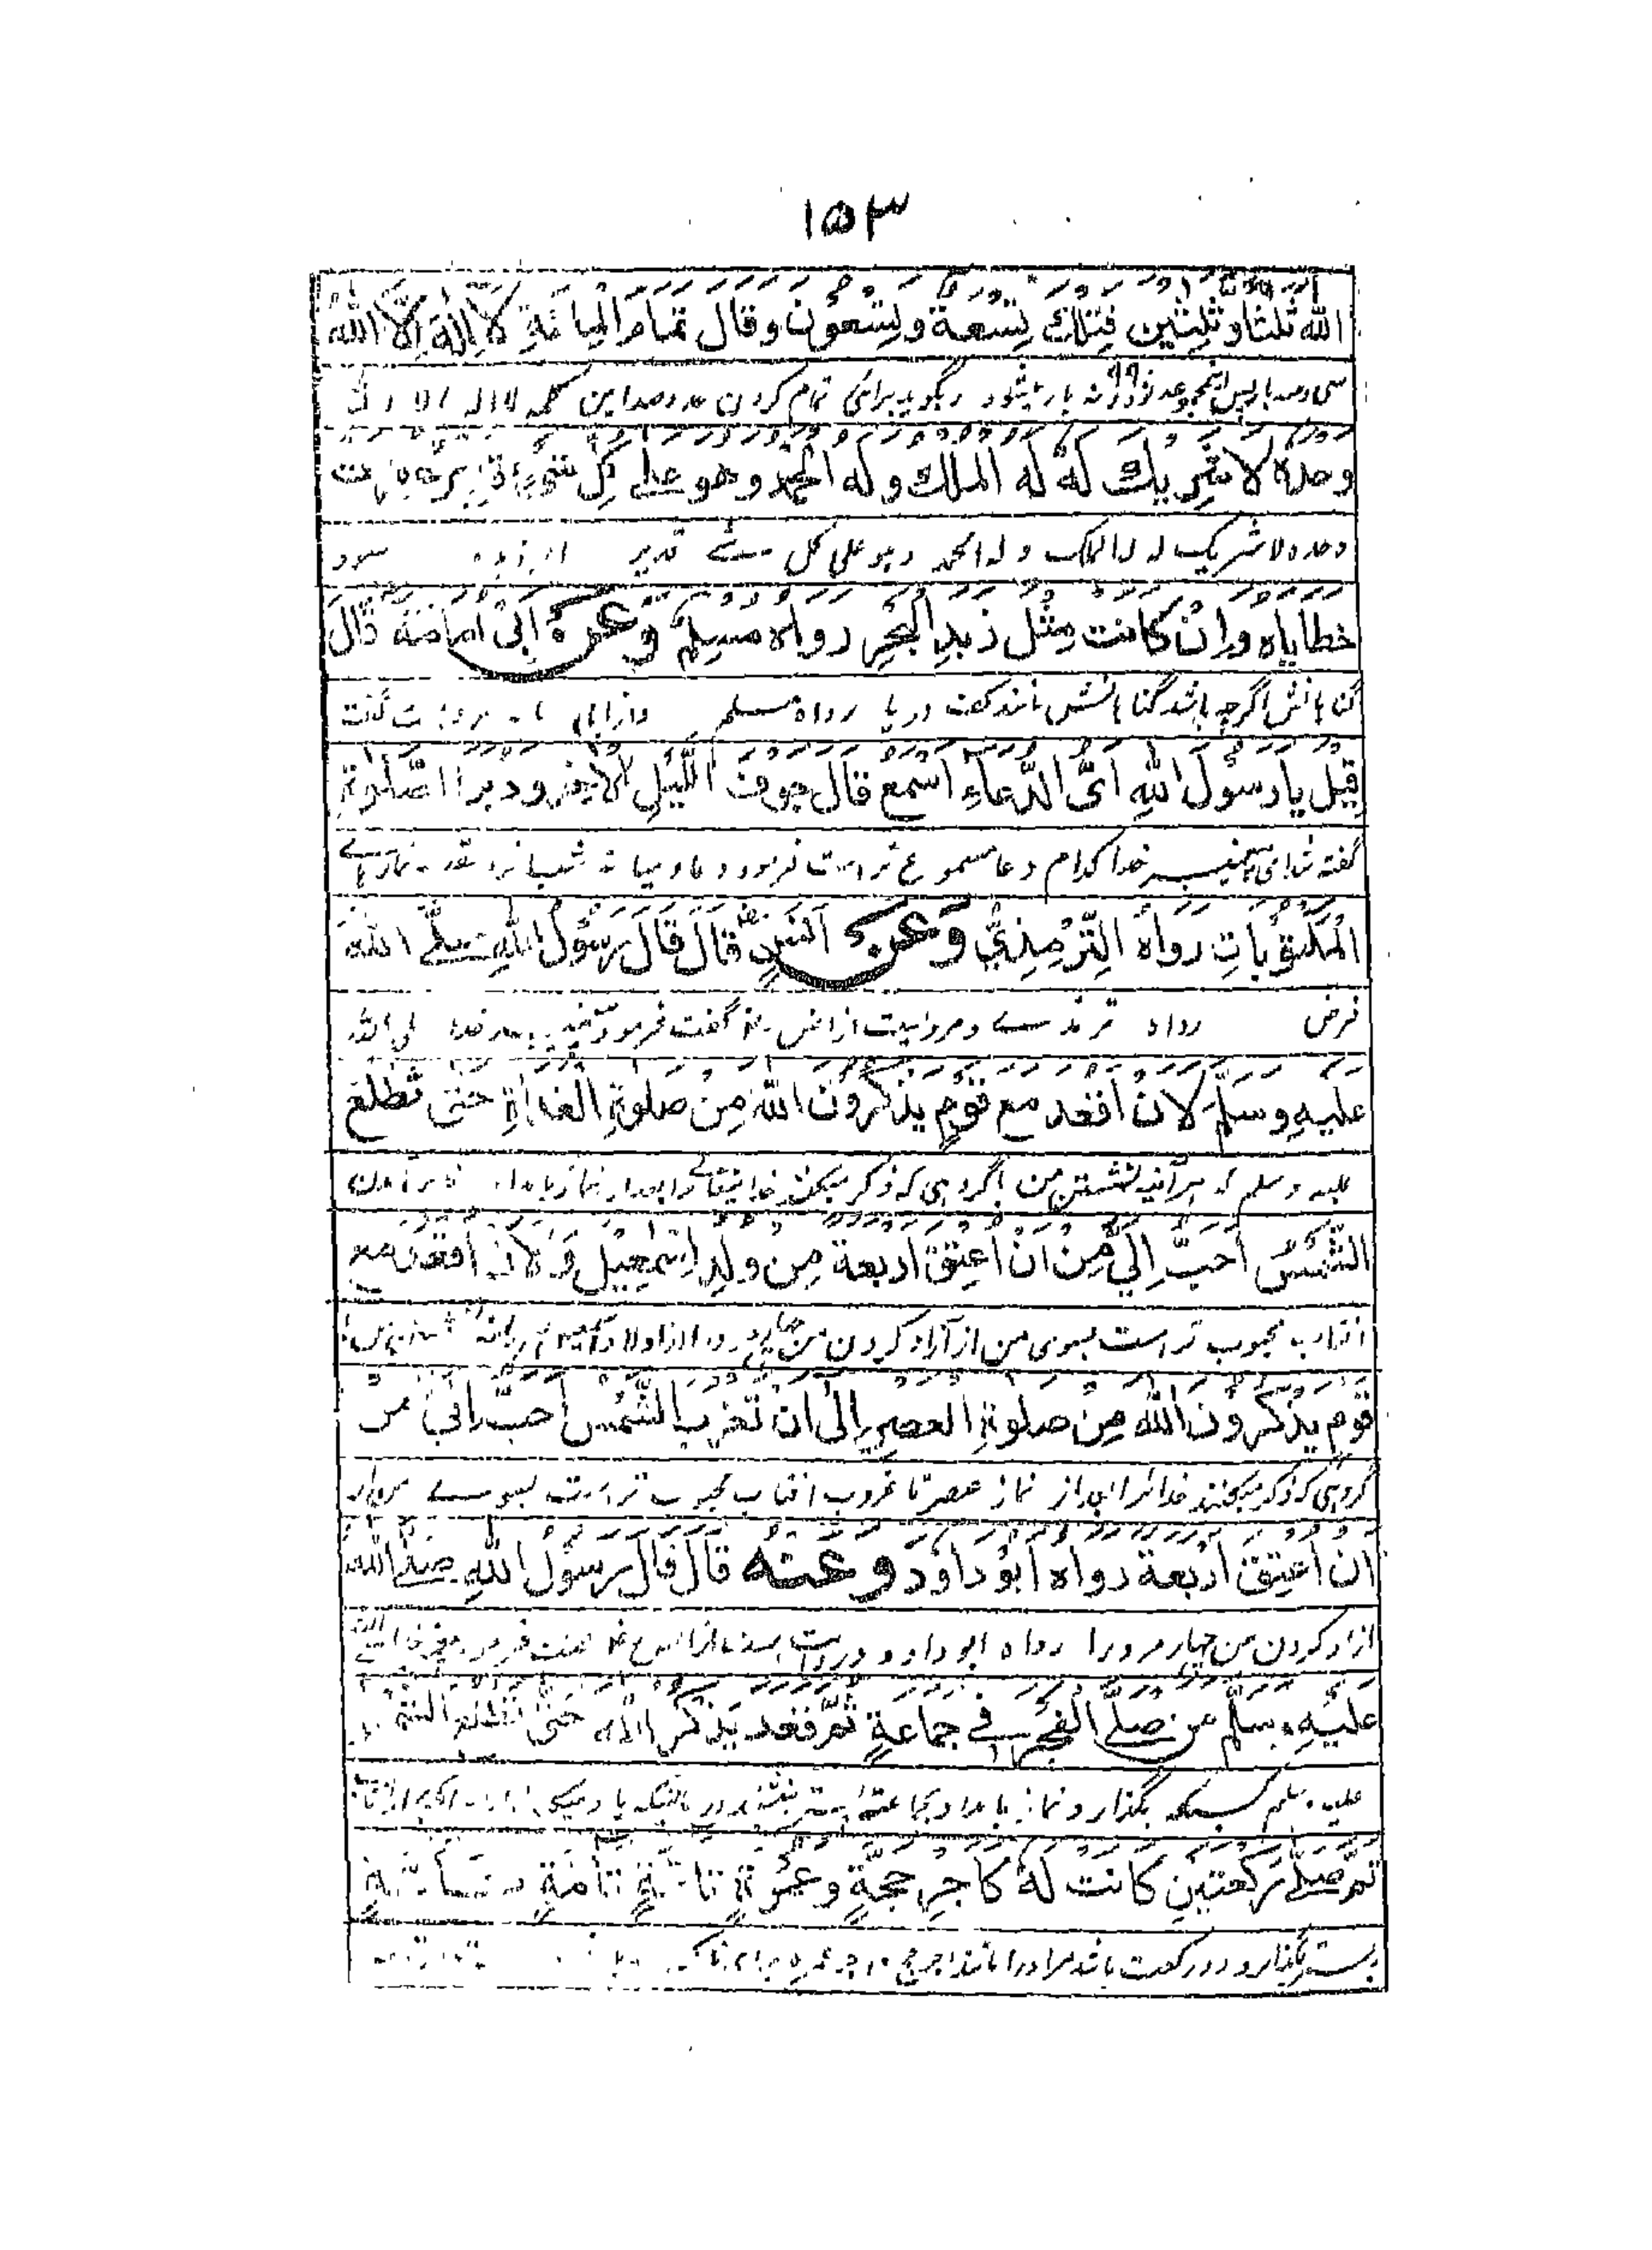 ۱۵۳
الله ثلثا وثلثين فتلك تسعة وتسعون وقال تمام المائة لا اله الا الله
سی و سه بار پس اینمجموعه نود و نه ۹۹ بار بشود و بگوید برای تمام کردن عدد صد این کلمه لا اله الا
وحده لا شريك له له الملك وله الحمد وهو على كل شئ قدير
وحده لا شریک له له الملک و له الحمد و هو علی کل شے قدیر
خطاياه وان كانت مثل زبد البحر رواه مسلم وعن ابى امامة قال
گناهانش اگرچه باشد گناهانش مانند کف دریا رواه مسلم و از ابی گفت
قيل يا رسول الله اى الدعاء اسمع قال جوف الليل الاخر ودبر الصلوة
گفته شد ای پیغمبر خدا کدام دعا مسموع تر است فرمود دعا در میانه شب
المكتوبات رواه الترمذي وعن انس رض قال قال رسول الله صلے الله
فرض رواه ترمذے و مرویست از انس رض گفت فرمود پیغمبر خدا صلی الله
عليه وسلم لان اقعد مع قوم يذكرون الله من صلوة الغداة حتى تطلع
علیه و سلم که هرآئینه نشستن من با گروهی که ذکر میکنند خدایتعالے را بعد از نماز بامداد
الشمس احب الي من ان اعتق اربعة من ولد اسمعيل ولان اقعد مع
افتاب محبوب تر است بسوی من از آزاد کردن من چهار مرد را از اولاد
قوم يذكرون الله من صلوة العصر الى ان تغرب الشمس احب الي من
گروهی که ذکر میکنند خدا را بعد از نماز عصر تا غروب افتاب محبوب تر است بسوے من از
ان اعتق اربعة رواه ابو داود وعنه قال قال رسول الله صلے الله
ازاد کردن من چهار مرد را رواه ابو داود و روایت است از انس رض گفت فرمود پیغمبر خدا
عليه وسلم من صلے الفجر فے جماعة ثم قعد يذكر الله حتى تطلع الشمس
علیه و سلم کسیکه بگذارد نماز بامداد بجماعت پستر بنشیند در حالیکه یاد میکند
ثم صلے ركعتين كانت له كاجر حجة وعمرة تامة تامة تامة
پستر بگذارد دو رکعت باشد مر او را مانند اجر حج و عمره